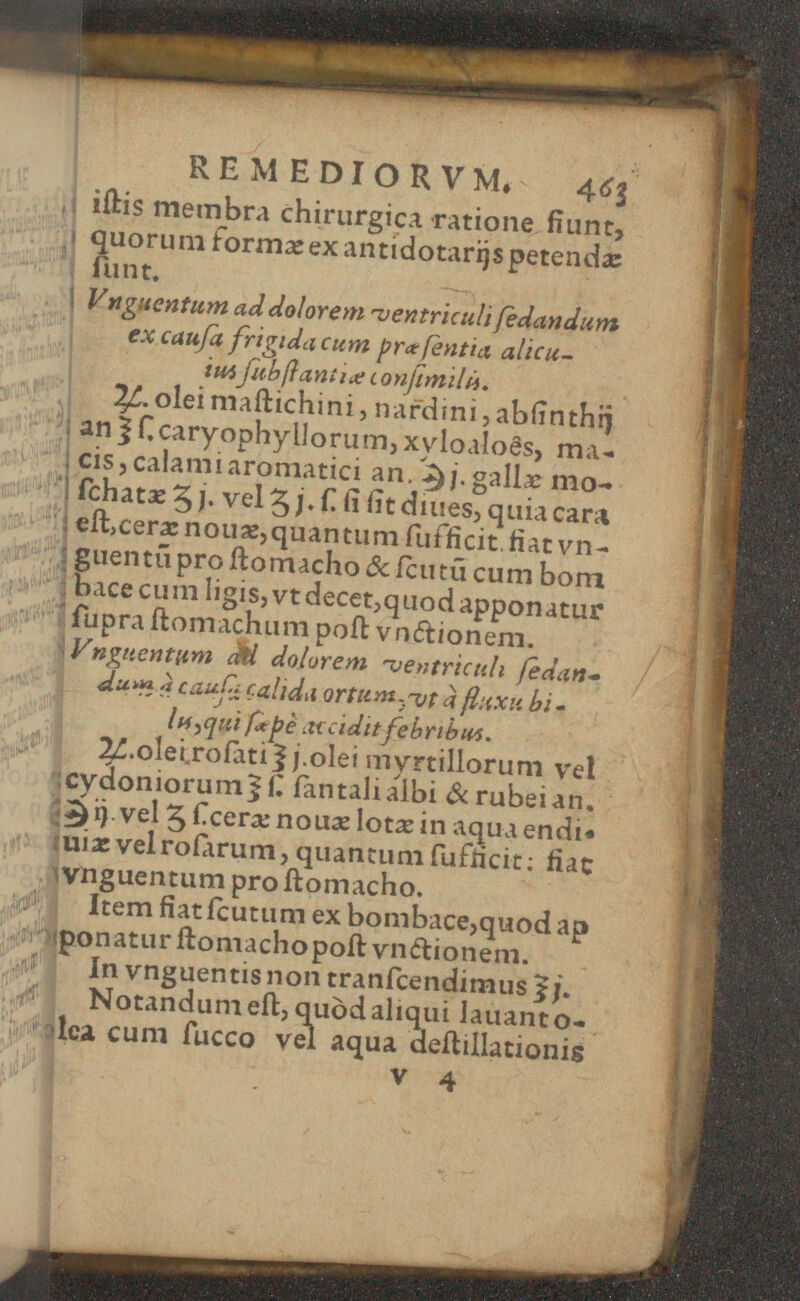 REMEDIORVM. 463
iſtis membra chirurgica ratione fiunt,
quorum formæ ex antidotarijs petendæ
ſunt.
Vnguentum ad dolorem ventriculi ſedandum
ex cauſa frigida cum præſentia alicu-
ius ſubſtantiæ conſimilis.
℞. olei maſtichini, nardini, abſinthij
an ℥ ſ. caryophyllorum, xyloaloës, ma-
cis, calami aromatici an. ℈ j. gallæ mo-
ſchatæ ʒ j. vel ʒ j. ſ. ſi ſit diues, quia cara
eſt, ceræ nouæ, quantum ſufficit. fiat vn-
guentū pro ſtomacho & ſcutū cum bom
bace cum ligis, vt decet, quod apponatur
ſupra ſtomachum poſt vnctionem.
Vnguentum ad dolorem ventriculi ſedan-
dum à cauſa calida ortum, vt à fluxu bi-
lis, qui ſæpè accidit febribus.
℞. olei roſati ℥ j. olei myrtillorum vel
cydoniorum ℥ ſ. ſantali albi & rubei an.
℈ ij. vel ʒ ſ. ceræ nouæ lotæ in aqua endi-
uiæ vel roſarum, quantum ſufficit: fiat
vnguentum pro ſtomacho.
Item fiat ſcutum ex bombace, quod ap
ponatur ſtomacho poſt vnctionem.
In vnguentis non tranſcendimus ℥ j.
Notandum eſt, quòd aliqui lauant o-
lea cum ſucco vel aqua deſtillationis
V 4